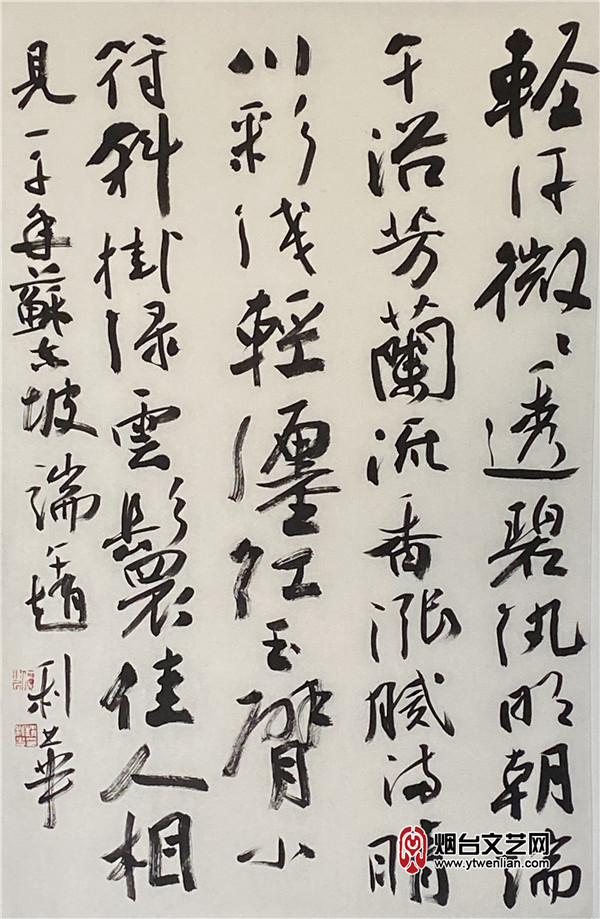 軽汗微々透碧紈明朝端
午浴芳蘭流香漲膩满晴
川彩线輕纏红玉臂小
符斜掛绿雲鬟佳人相
見一千年蘇东坡端午趙利華
烟台文艺网
www.ytwenlian.com